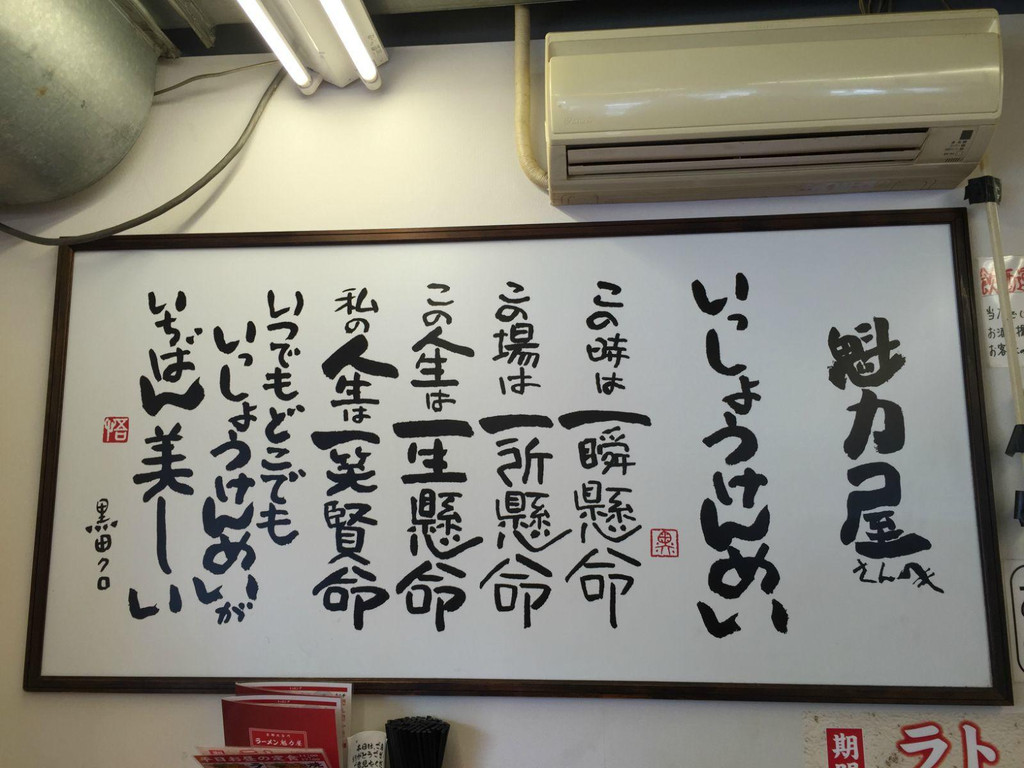 魁力屋
さんへ
いっしょうけんめい
この時は
一瞬懸命
この場は
一所懸命
この人生は
一生懸命
私の人生は
一笑賢命
いつでもどこでも
いっしょうけんめいが
いちばん美しい
悟
黒田クロ
ラーメン魁力屋
本日お昼の定食
期間
ラト